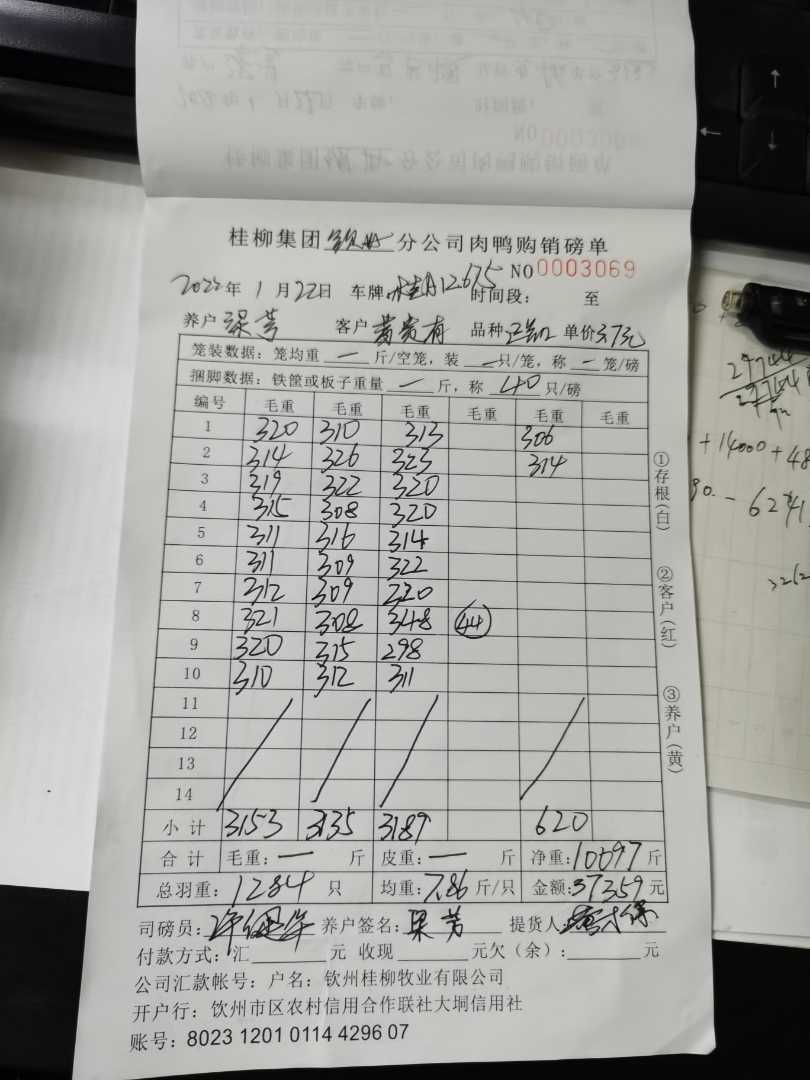 桂柳集团钦州分公司肉鸭购销磅单
NO0003069
2022年1月22日 车牌: 时间段: 至
养户梁芳 客户黄贵有 品种 单价3.7元
笼装数据: 笼均重 一 斤/空笼, 装 一 只/笼, 称 一 笼/磅
捆脚数据: 铁筐或板子重量 一 斤, 称 40 只/磅
编号 毛重 毛重 毛重 毛重 毛重 毛重
1 320 310 313 306
2 314 326 323 314
3 319 322 320
4 315 308 320
5 311 316 314
6 311 309 322
7 312 309 320
8 321 308 348 44
9 320 315 298
10 310 312 311
11
12
13
14
小计 3153 3135 3189 620
合计 毛重: 一 斤 皮重: 一 斤 净重: 10097斤
总羽重: 1284 只 均重: 7.86斤/只 金额: 37359元
司磅员: 养户签名: 梁芳 提货人
付款方式: 汇 元 收现 元欠(余): 元
公司汇款帐号: 户名: 钦州桂柳牧业有限公司
开户行: 钦州市区农村信用合作联社大垌信用社
账号: 8023 1201 0114 4296 07
①存根(白)
②客户(红)
③养户(黄)